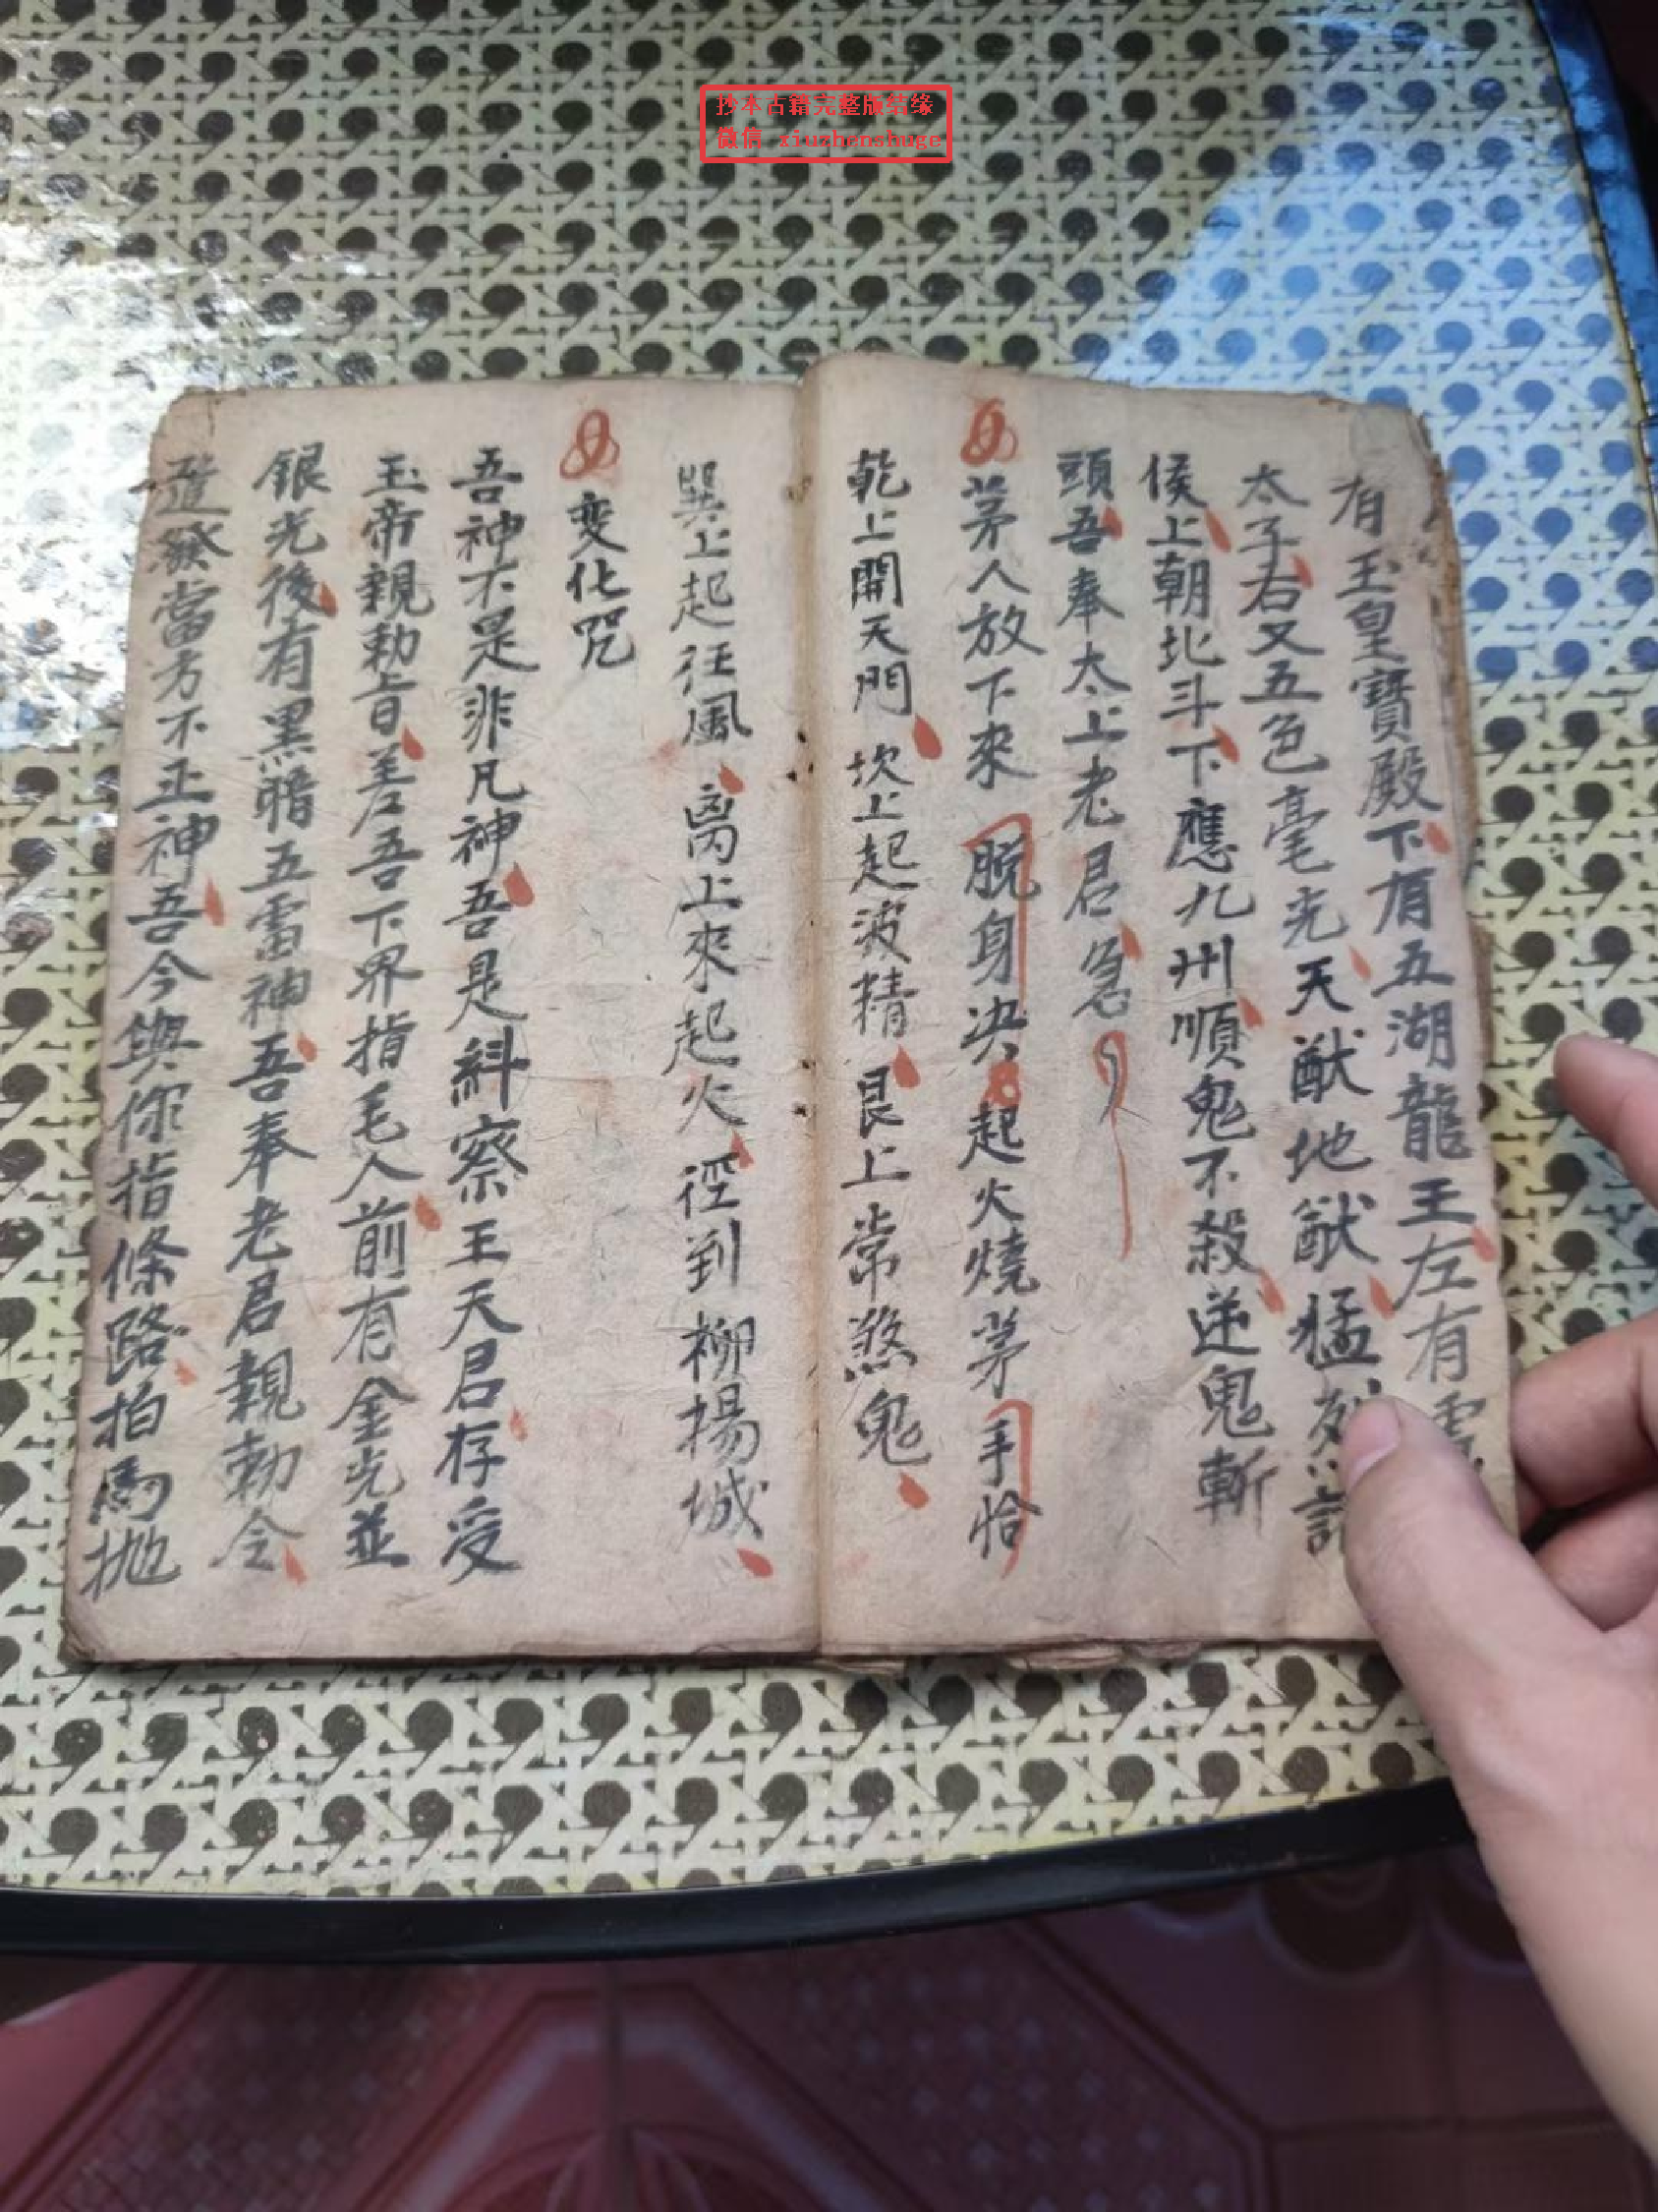 抄本古籍完整版结缘
微信 xiuzhenshuge
有玉皇寶殿下有五湖龍王左有
太子右又五色毫光天猷地猷猛烈
侯上朝北斗下應九州順鬼不殺逆鬼斬
頭吾奉太上老君急
茅人放下來 脱身决 起火燒茅 手恰
乾上開天門 坎上起波精 艮上常煞鬼
巽上起狂風 离上來起火 徑到柳揚城
变化咒
吾神不是非凡神吾是糾察王天君存受
玉帝親勅旨差吾下界指毛人前有金光並
銀光後有黑暗五雷神吾奉老君親勅令
發當方不正神吾今與你指條路拍馬拋